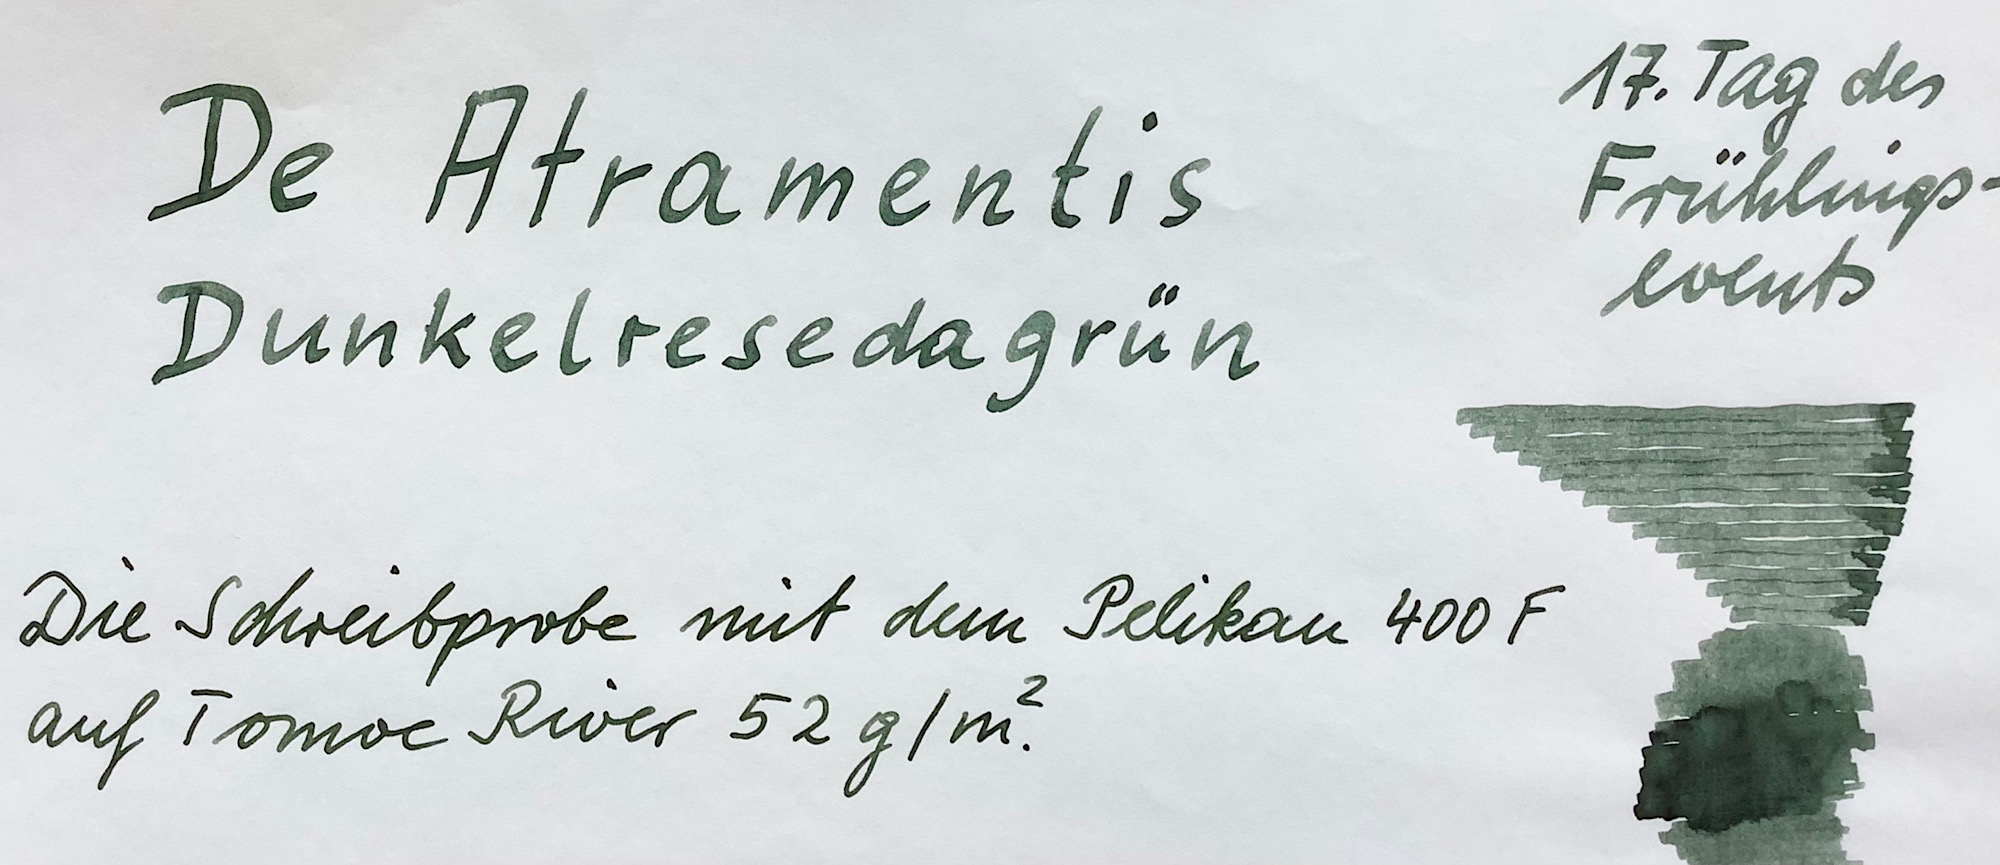 De Atramentis
Dunkelresedagrün
17. Tag des
Frühlings-
events
Die Schreibprobe mit dem Pelikan 400 F
auf Tomoe River 52 g/m².